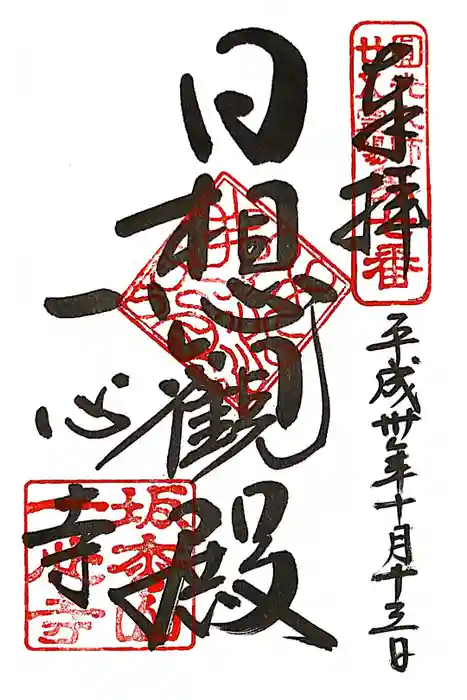 奉拝
平成卅年十月十三日
日想観殿
一心寺
坂松山
一心寺